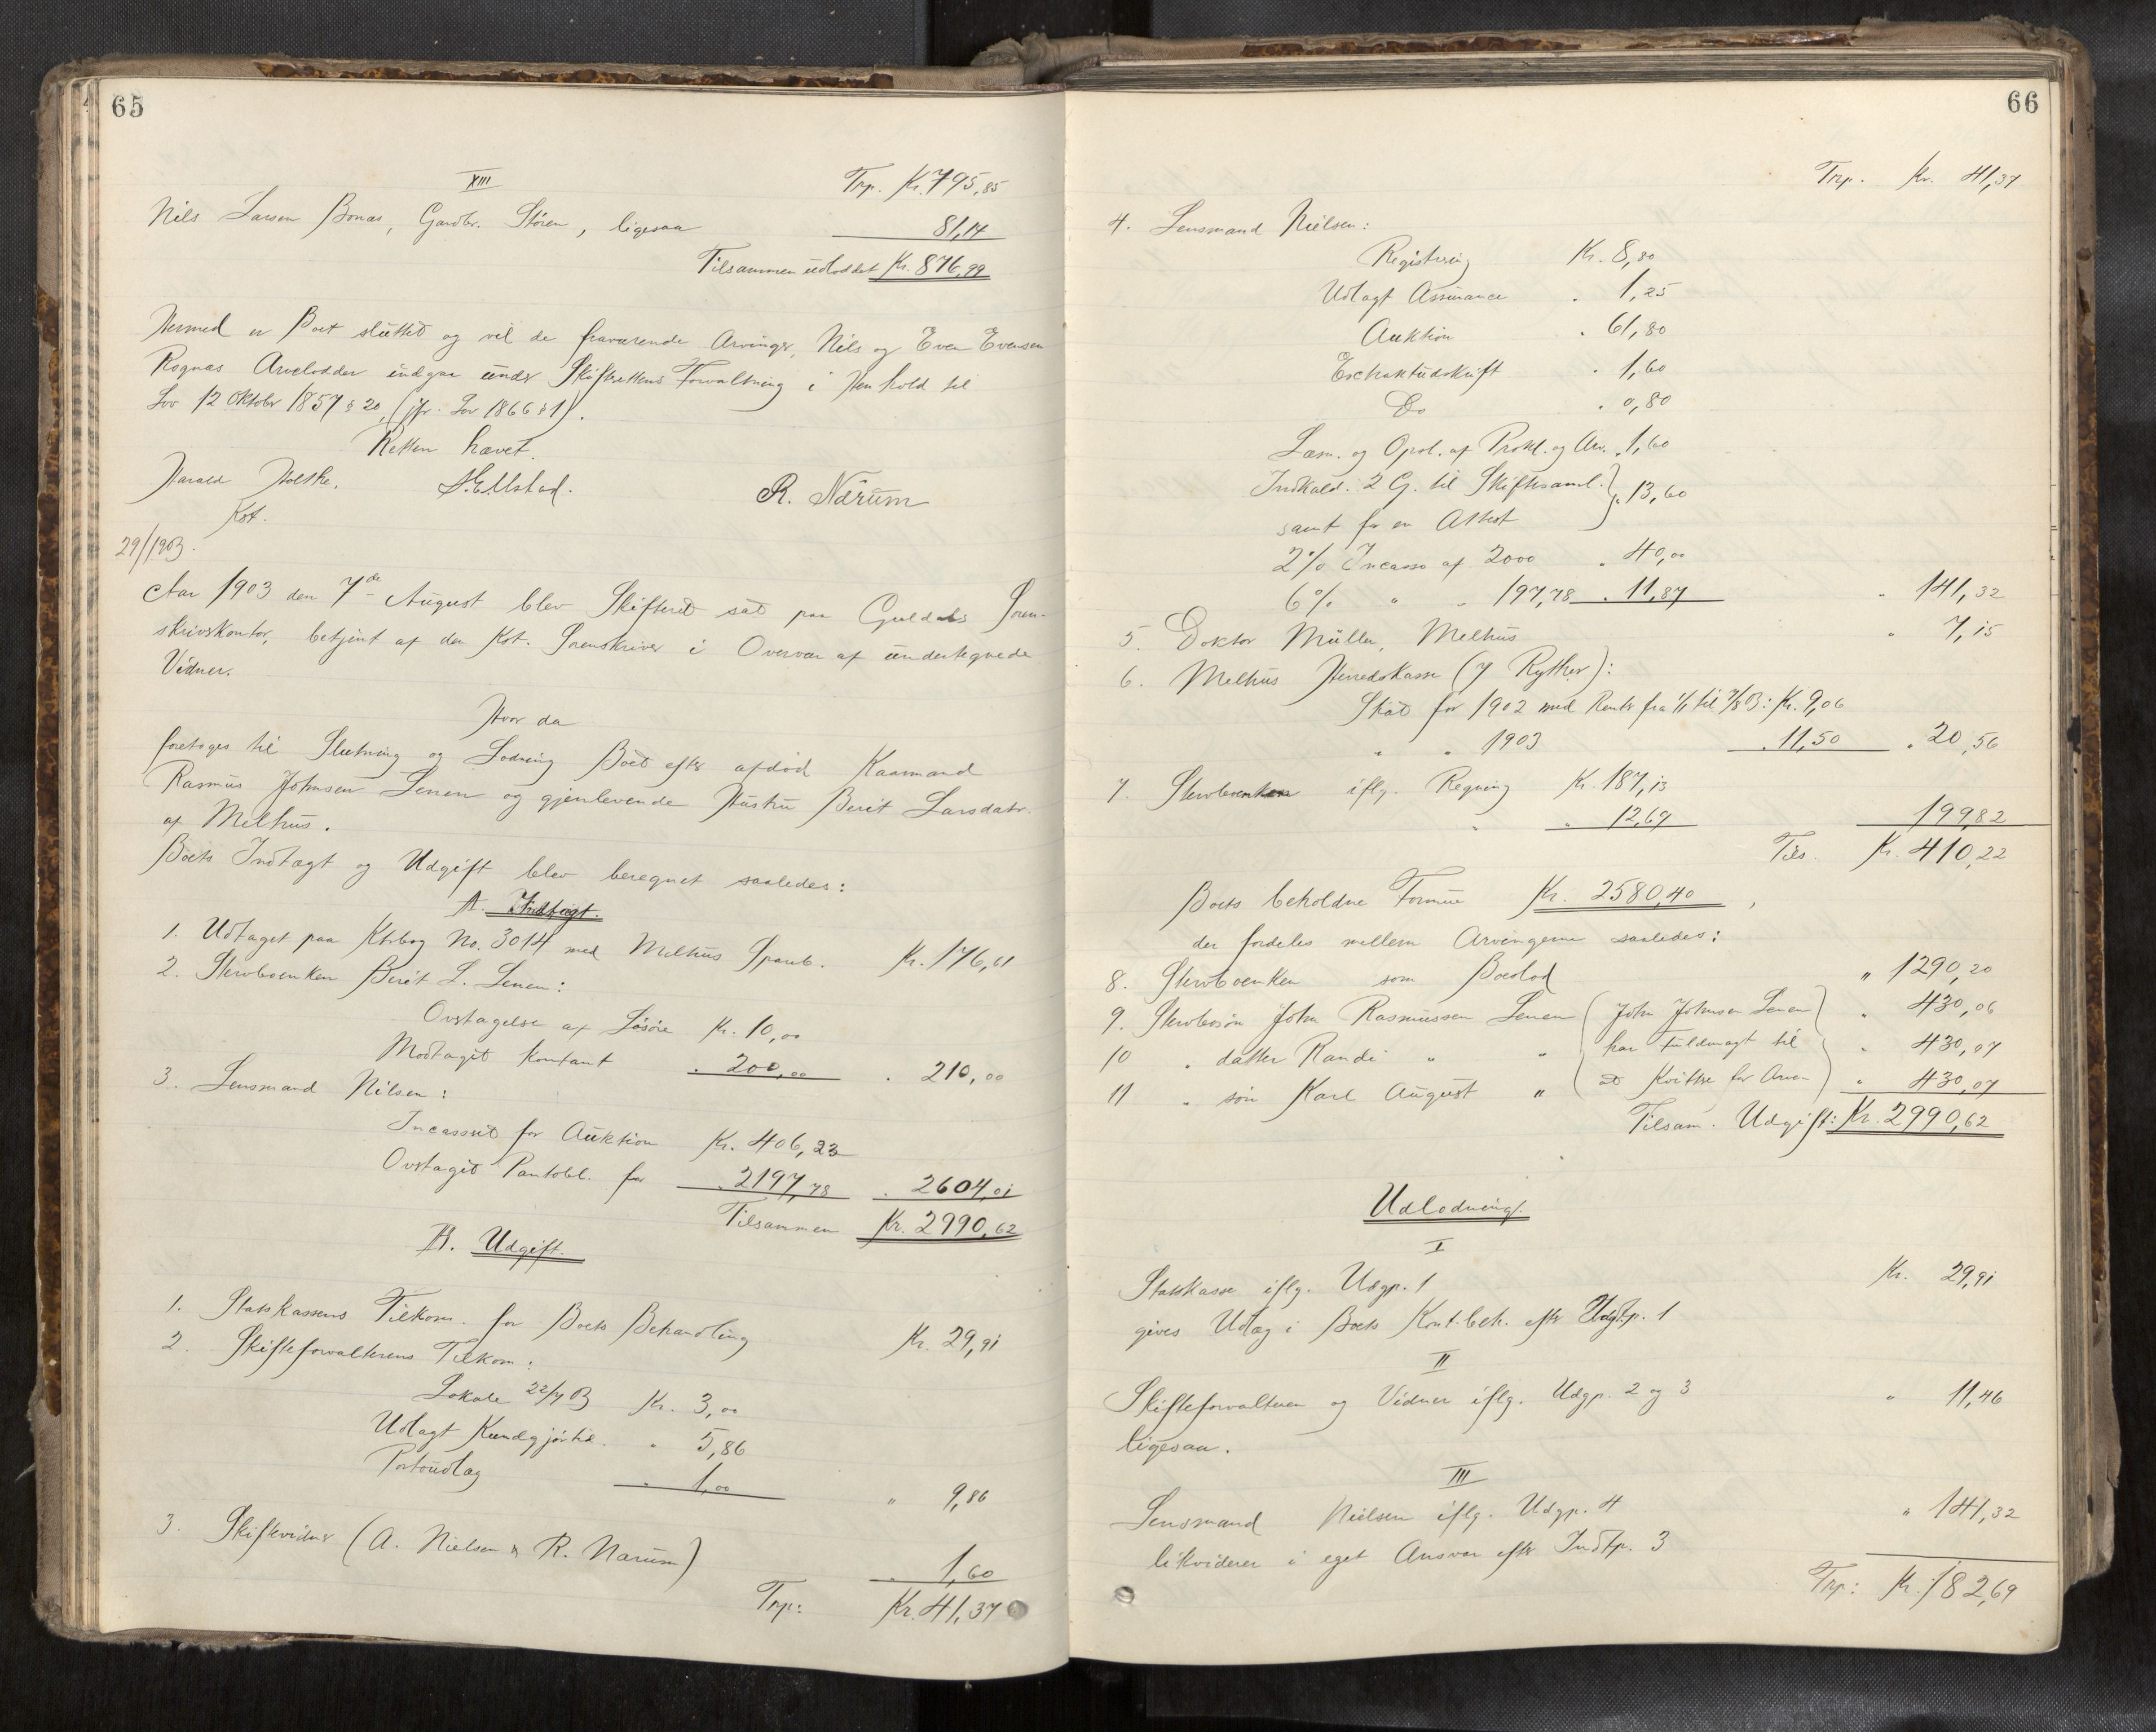 65
XIII
Trp. Kr. 795,85
Nils Larsen Bonas, Gaardbr. Støren, ligesaa 81,14
Tilsammen udloddet Kr. 876,99
Hermed er Boet sluttet og vil de fraværende Arvinger, Nils og Even Evensen
Rognas Arvelodder indgaa under Skifterettens Forvaltning i Henhold til
Lov 12 Oktober 1857 § 20, (jfr. Lov 1866 § 1).
Retten hævet.
Harald Holtke. R. Nærum
Kst.
29/1903.
Aar 1903 den 7de August blev Skifteret sat paa Guldals Soren-
skriverkontor, betjent af den Kst. Sorenskriver i Overvær af undertegnede
Vidner.
Hvor da
foretoges til Slutning og Lodning Boet efter afdød Kaarmand
Rasmus Johnsen Lenen og gjenlevende Hustru Berit Larsdatr.
af Melhus.
Boets Indtægt og Udgift blev beregnet saaledes:
A. Indtægt.
1. Udtaget paa Ktrbog No. 3014 med Melhus Spareb. Kr. 176,61
2. Stervboenken Berit L. Lenen:
Overtagelse af Løsøre Kr. 10,00
Modtaget kontant " 200,00 " 210,00
3. Lensmand Nilsen:
Incasseret for Auktion Kr. 406,23
Overtaget Pantobl. for " 2197,78 " 2604,01
Tilsammen Kr. 2990,62
B. Udgift.
1. Statskassens Tilkom. for Boets Behandling Kr. 29,91
2. Skifteforvalterens Tilkom:
Lokale 22/7 03 Kr. 3,00
Udlagt Kundgjørtid. " 5,86
Portoudlæg " 1,00 " 9,86
3. Skiftevidner (A. Nielsen & R. Nærum) " 1,60
Trp: Kr. 41,37
66
Trp. Kr. 41,37
4. Lensmand Nielsen:
Registrering Kr. 8,80
Udlagt Assurance " 1,25
Auktion " 61,80
Extraktudskrift " 1,60
Do " 0,80
Læsn. og Opsl. af Prokl. og Arv. " 1,60
Indkald. 2 G. til Skiftesaml.
samt for en Attest } " 13,60
2% Incasso af 2000 " 40,00
6% " " 197,78 " 11,87 " 141,32
5. Doktor Müller, Melhus " 7,15
6. Melhus Herredskasse (J Rythер):
Skat for 1902 med Renter fra 1/1 til 7/8 03: Kr. 9,06
" " 1903 " 11,50 " 20,56
7. Stervboenken iflg. Regning Kr. 187,13
" " 12,69 199,82
Tils. Kr. 410,22
Boets beholdne Formue Kr. 2580,40,
der fordeles mellem Arvingerne saaledes:
8. Stervboenken som Boslod " 1290,20
9. Stervbosøn John Rasmussen Lenen (John Johnsen Lenen) " 430,06
10 " datter Randi " " (har Fuldmagt til) " 430,07
11 " søn Karl August " (at kvittere for Arven) " 430,07
Tilsam. Udgift: Kr. 2990,62
Udlodning.
I
Statskasse iflg. Udgp. 1 Kr. 29,91
gives Udlæg i Boets Kont. beh. efter Indtp. 1
II
Skifteforvalteren og Vidner iflg. Udgp. 2 og 3 " 11,46
ligesaa.
III
Lensmand Nielsen iflg. Udgp. 4 " 141,32
likviderer i eget Ansvar efter Indtp. 3
Trp: Kr. 182,69